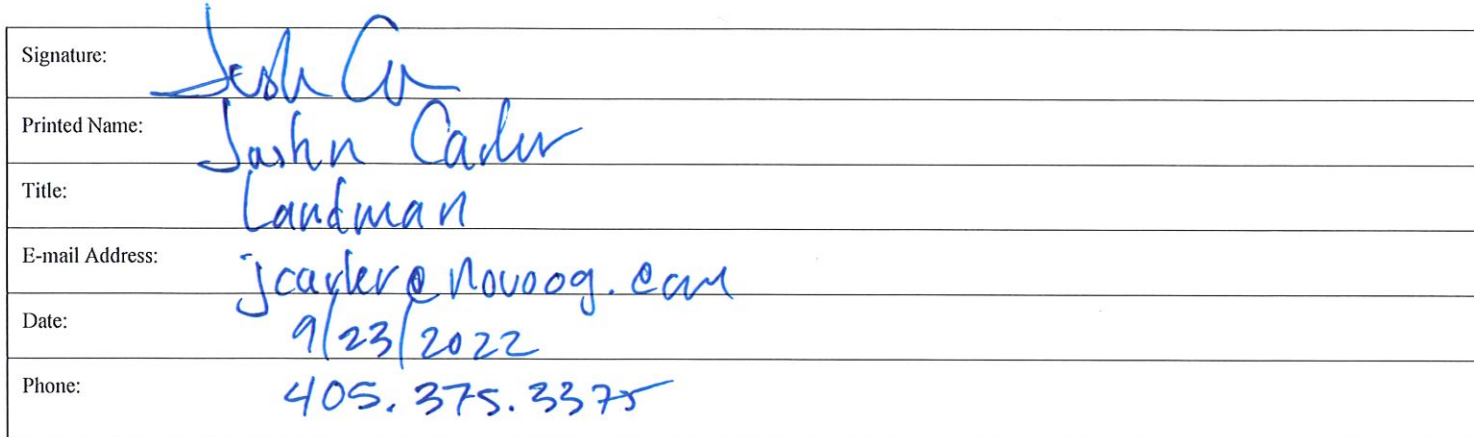 Signature: Josh Ca
Printed Name: Justin Carter
Title: Landman
E-mail Address: jcarter@novoog.com
Date: 9/23/2022
Phone: 405.375.3375